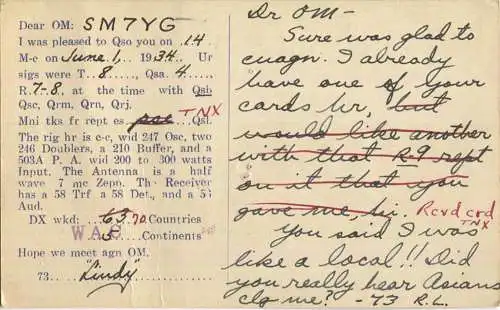 Dear OM: SM7YG
I was pleased to Qso you on 14
M-c on June 1, 1934. Ur
sigs were T..8...., Qsa..4....,
R.7-8., at the time with Qsb
Qsc, Qrm, Qrn, Qrj.
Mni tks fr rept es pse Qsl. TNX
The rig hr is c-c, wid 247 Osc, two
246 Doublers, a 210 Buffer, and a
503A P. A. wid 200 to 300 watts
Input. The Antenna is a half
wave 7 mc Zepp. The Receiver
has a 58 Trf a 58 Det., and a 56
Aud.
DX wkd: 70 Countries
WAC Continents
Hope we meet agn OM.
73 "Lindy"
Dr OM-
Sure was glad to
cuagn. I already
have one of your
cards hr, but
would like another
with that R-9 rept
on it that you
gave me, hi. Rcvd crd
TNX
You said I was
like a local!! Did
you really hear Asians
clg me? - 73 R.L.